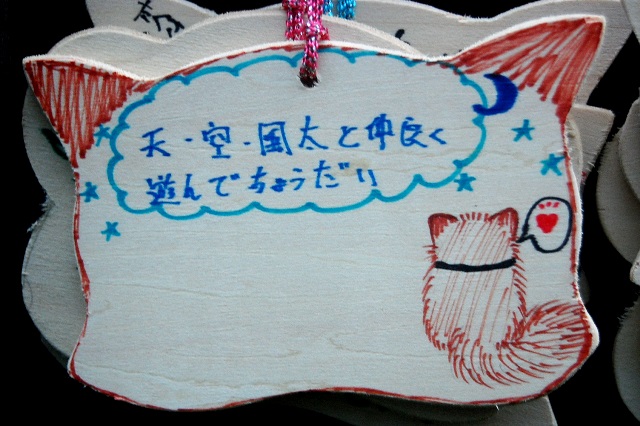 天・空・国太と仲良く
遊んでちょうだい